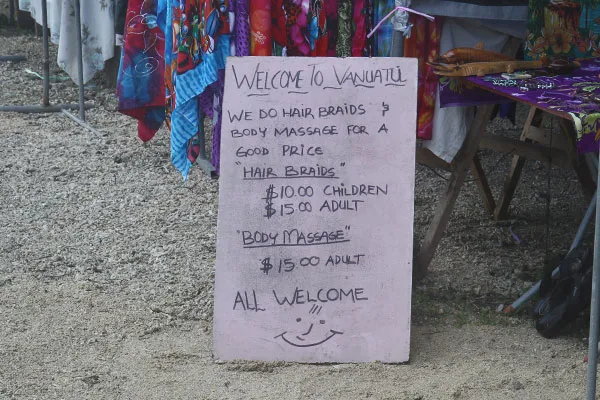 WELCOME TO VANUATU
WE DO HAIR BRAIDS &
BODY MASSAGE FOR A
GOOD PRICE
"HAIR BRAIDS"
$10.00 CHILDREN
$15.00 ADULT
"BODY MASSAGE"
$15.00 ADULT
ALL WELCOME